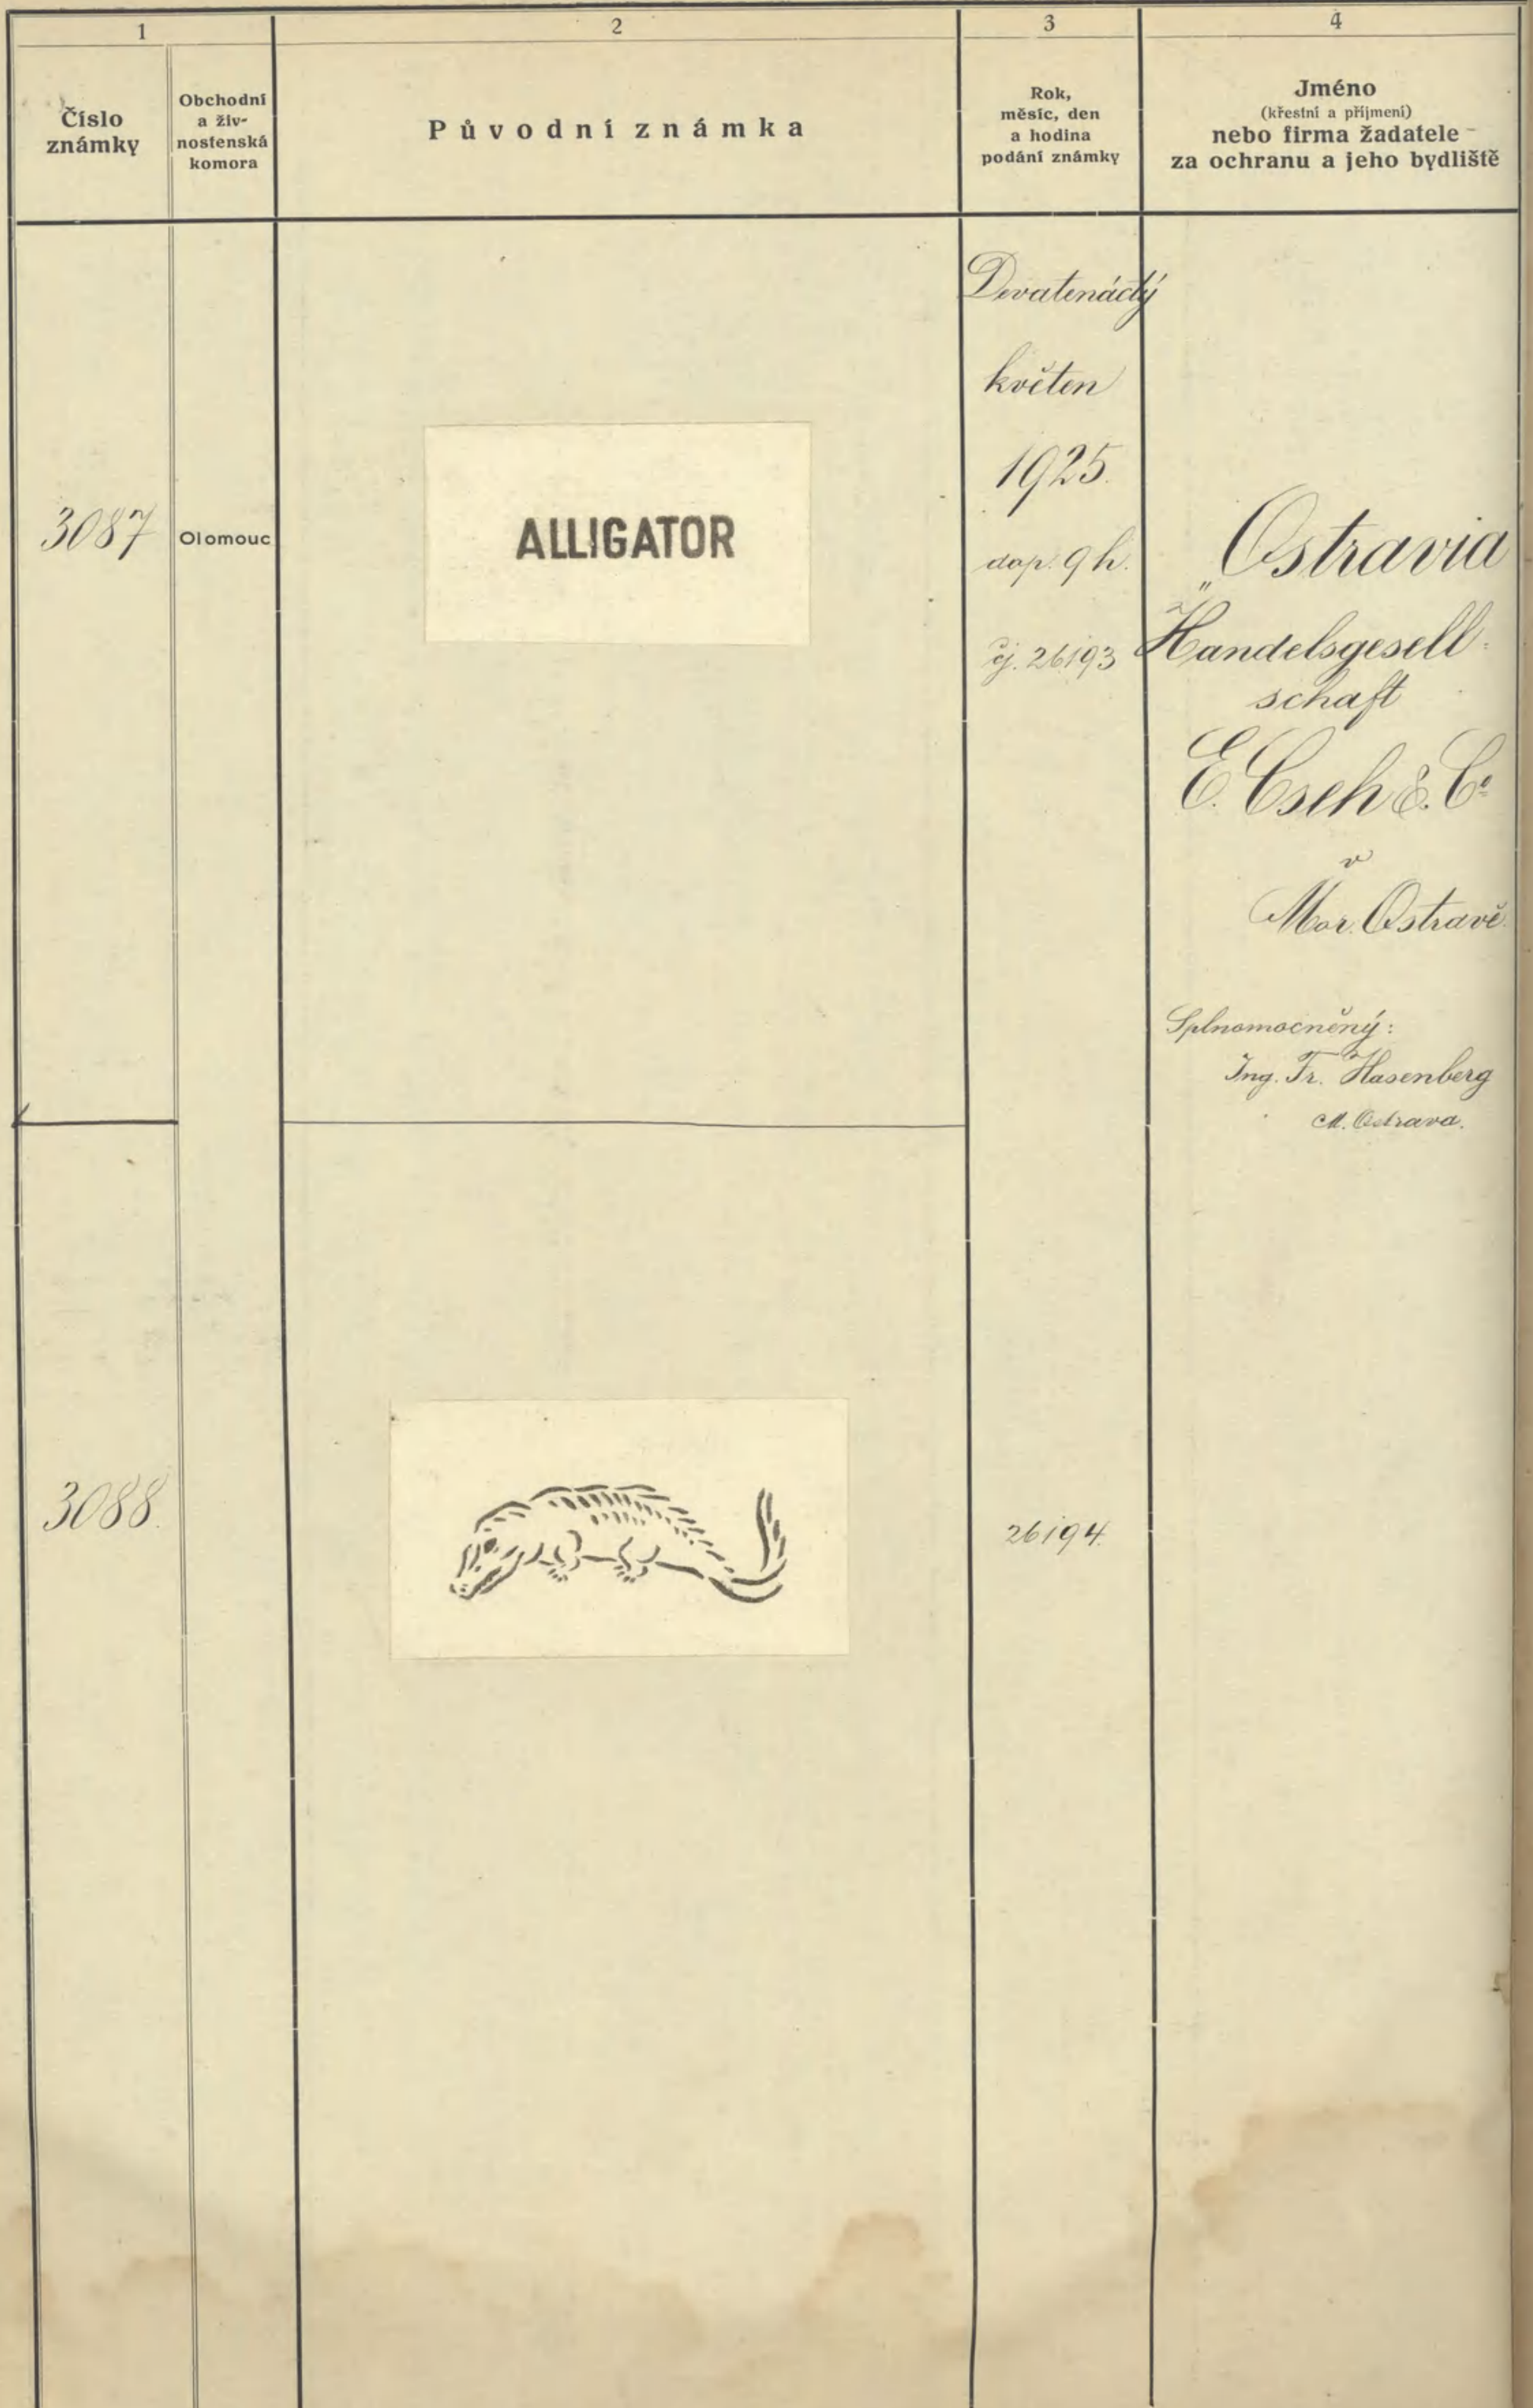 1
2
3
4
Číslo
známky
Obchodní
a živ-
nostenská
komora
Původní známka
Rok,
měsíc, den
a hodina
podání známky
Jméno
(křestní a příjmení)
nebo firma žadatele
za ochranu a jeho bydliště
3087
Olomouc
ALLIGATOR
Devatenáctý
květen
1925.
dop. 9 h.
čj. 26193
„Ostravia"
Handelsgesell-
schaft
E. Cseh & Co
v
Mor. Ostravě.
Splnomocněný:
Ing. Fr. Hasenberg
M. Ostrava.
3088.
26194.